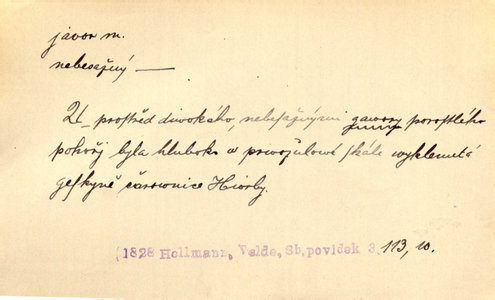 javor m.
nebesažný —
U prostřed divokého, nebesažnými gawory porostlého
pohořj byla hluboko w prwozulowé skále wyklenutá
geskyně čarownice Hiorby.
(1828 Hollmann, Velde, Sb.povídek 3, 113, 10.